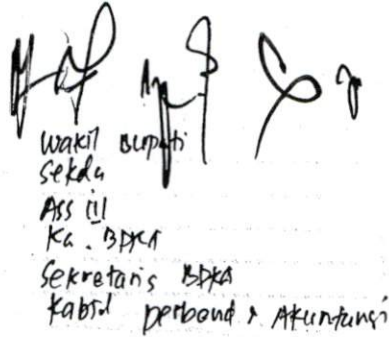 Wakil Bupati
Sekda
Ass III
Ka. BPKA
Sekretaris BPKA
Kabid perbend & Akuntansi